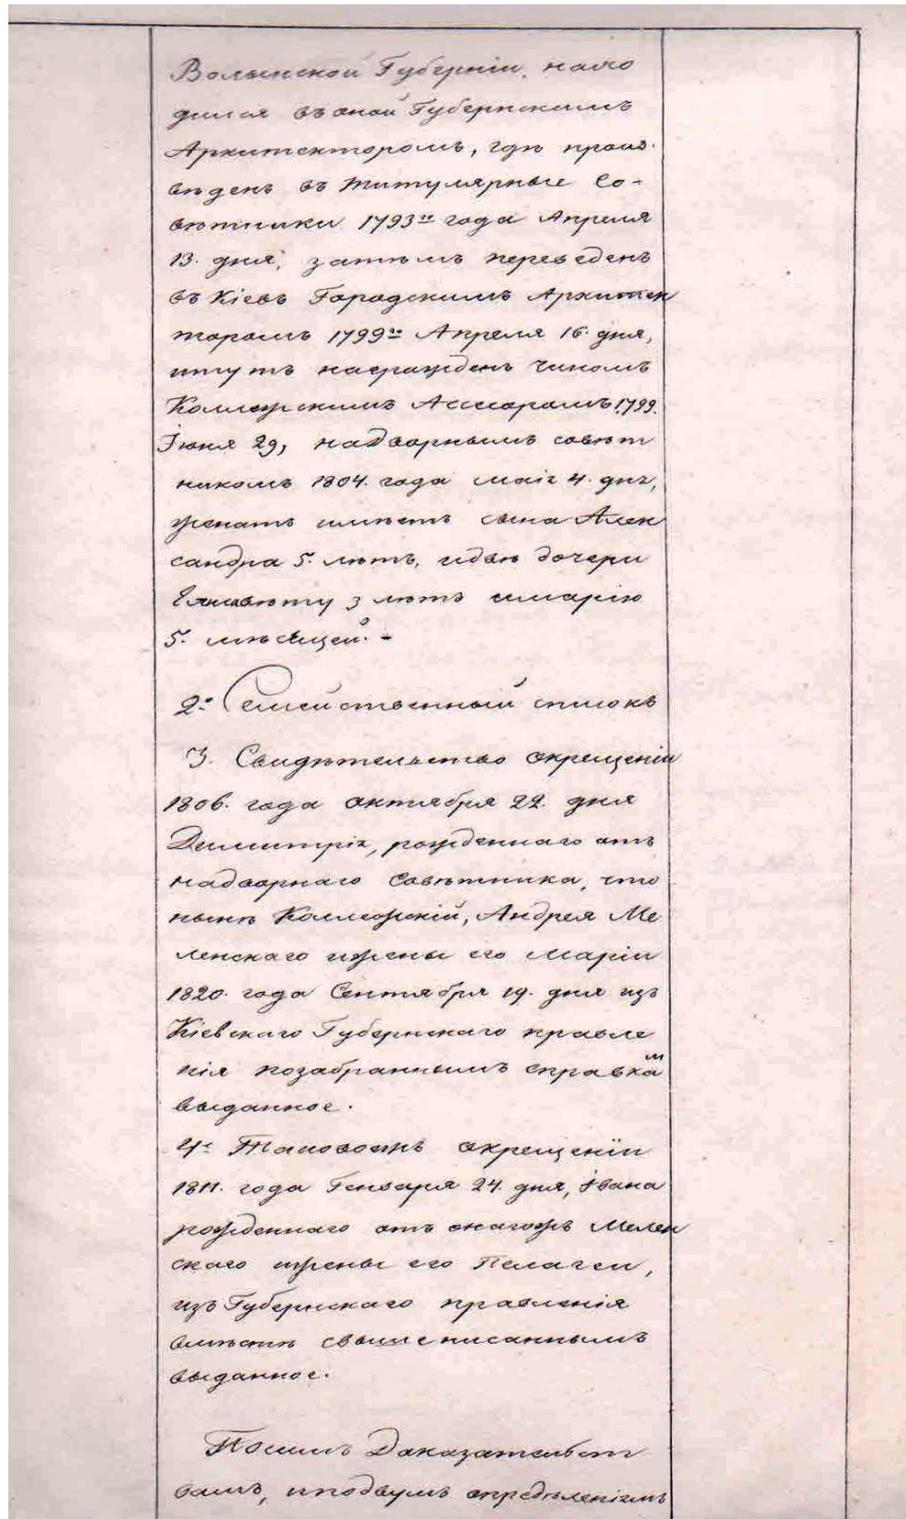 Волынской Губерніи, нахо
дился въ оной Губернскимъ
Архитекторомъ, гдѣ произ-
вѣденъ въ титулярные Со-
вѣтники 1793го года Апреля
13. дня, затѣмъ переведенъ
въ Кіевъ Городскимъ Архитек
торомъ 1799го Апреля 16. дня,
итутъ награжденъ чиномъ
Коллежскимъ Ассесаромъ 1799.
Іюня 29, надворнымъ совѣт
никомъ 1804. года маія 4. дня,
женатъ имѣетъ сына Алек
сандра 5. лѣтъ, идвѣ дочери
Елисавѣту 3 лѣтъ имарію
5. мѣсяцей. -
2е Семейственный списокъ
3. Свидѣтельство окрещеніи
1806. года октября 22. дня
Димитрія, рожденнаго отъ
надворнаго Совѣтника, что
нынѣ Коллежскій, Андрея Ме
ленскаго ижены его Маріи
1820. года Сентября 19. дня изъ
Кіевскаго Губернскаго правле
нія позабраннымъ справкам
выданное.
4е Таковоежъ окрещеніи
1811. года Генваря 24. дня, Івана
рожденнаго отъ онагожъ Мелен
скаго ижены его Пелагеи,
изъ Губернскаго правленія
вмѣстѣ свышеписаннымъ
выданное.
Посимъ Доказательст
вамъ, иподвумъ опредѣленіямъ